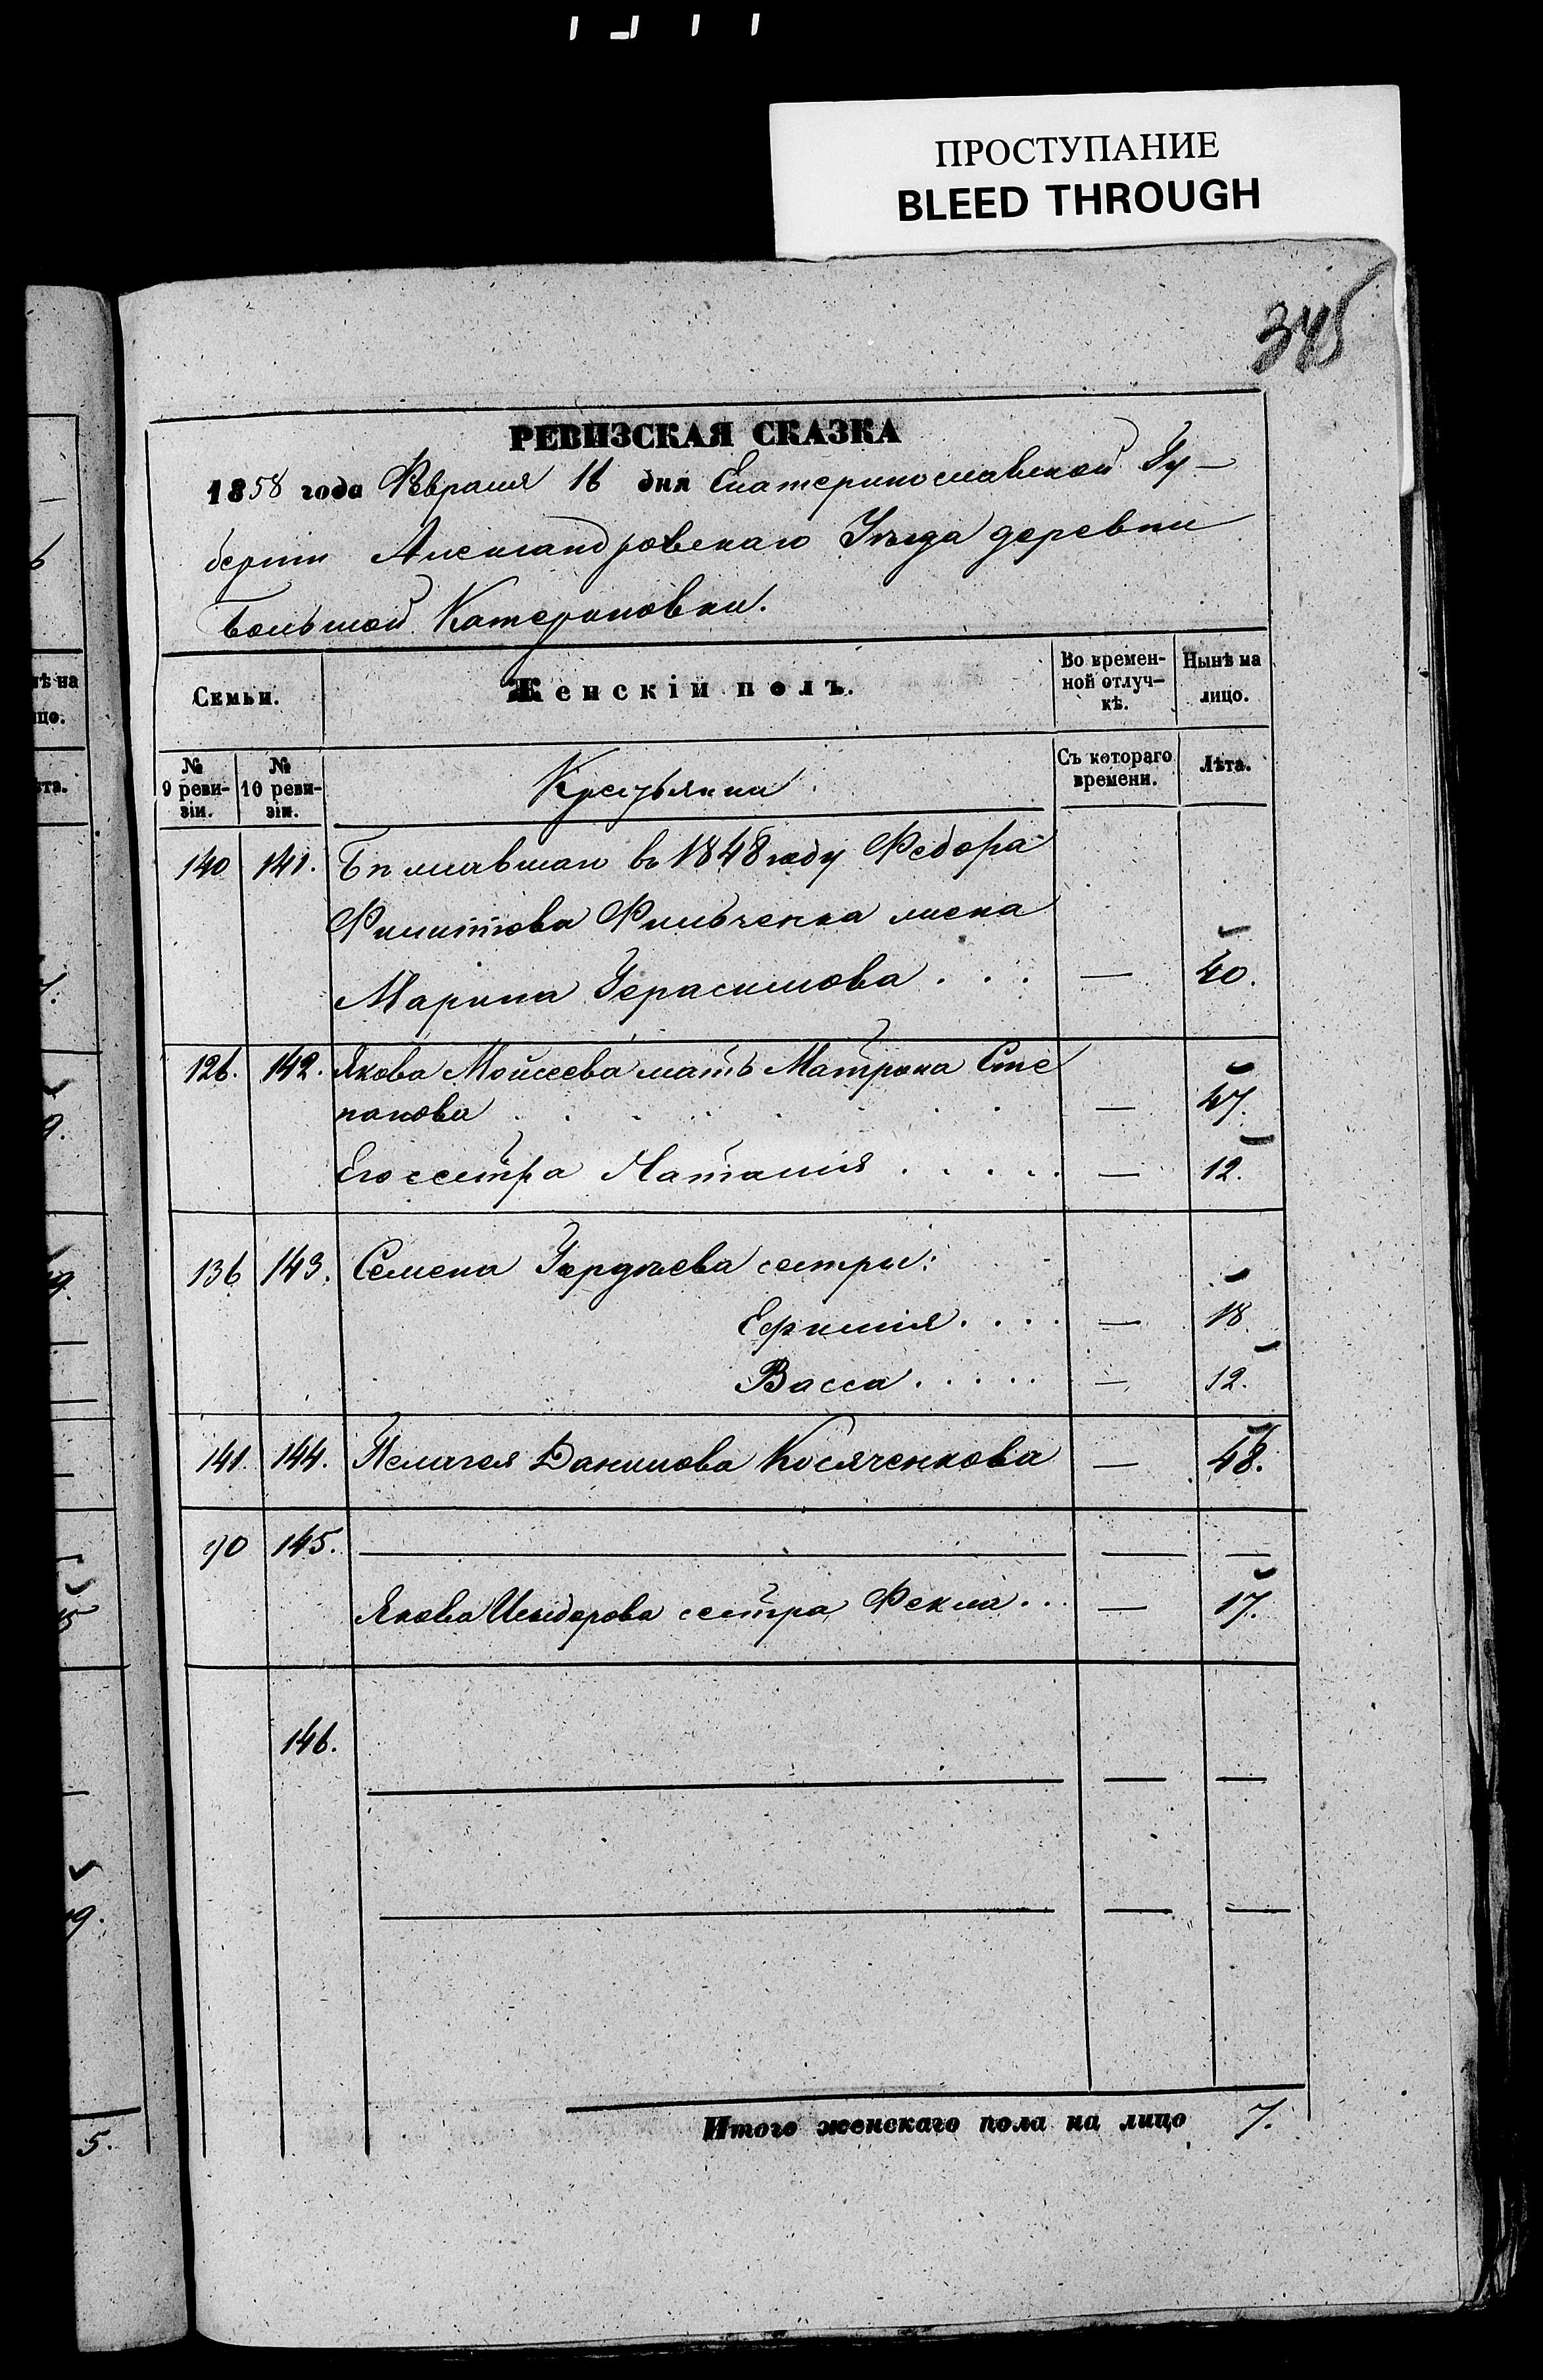 ПРОСТУПАНИЕ
BLEED THROUGH
345
РЕВИЗСКАЯ СКАЗКА
1858 года Февраля 16 дня Екатеринославской Гу-
берніи Александровскаго Уѣзда деревни
Большой Катериновки.
Семьи.
Женскій полъ.
Во времен-
ной отлуч-
кѣ.
Нынѣ на
лицо.
№
9 реви-
зіи.
№
10 реви-
зіи.
Крестьянка
Съ котораго
времени.
Лѣта.
140 141. Бѣжавшаго въ 1848 году Федора
Филиппова Фильченка жена
Марина Герасимова . . . — 40.
126. 142. Якова Моисеева мать Матрона Сте
панова — 47.
Его сестра Наталия . . . . . — 12.
136 143. Семена Гордѣева сестры:
Ефимия. . . . — 18
Васса. . . . . — 12.
141. 144. Пелагея Данилова Косяченкова — 48.
70 145. — — —
Якова Исидорова сестра Фекла . . . — 17.
146.
— — —
— — —
Итого женскаго пола на лицо 7.
ѣ на
ицо.
ѣта.
9.
9.
5.